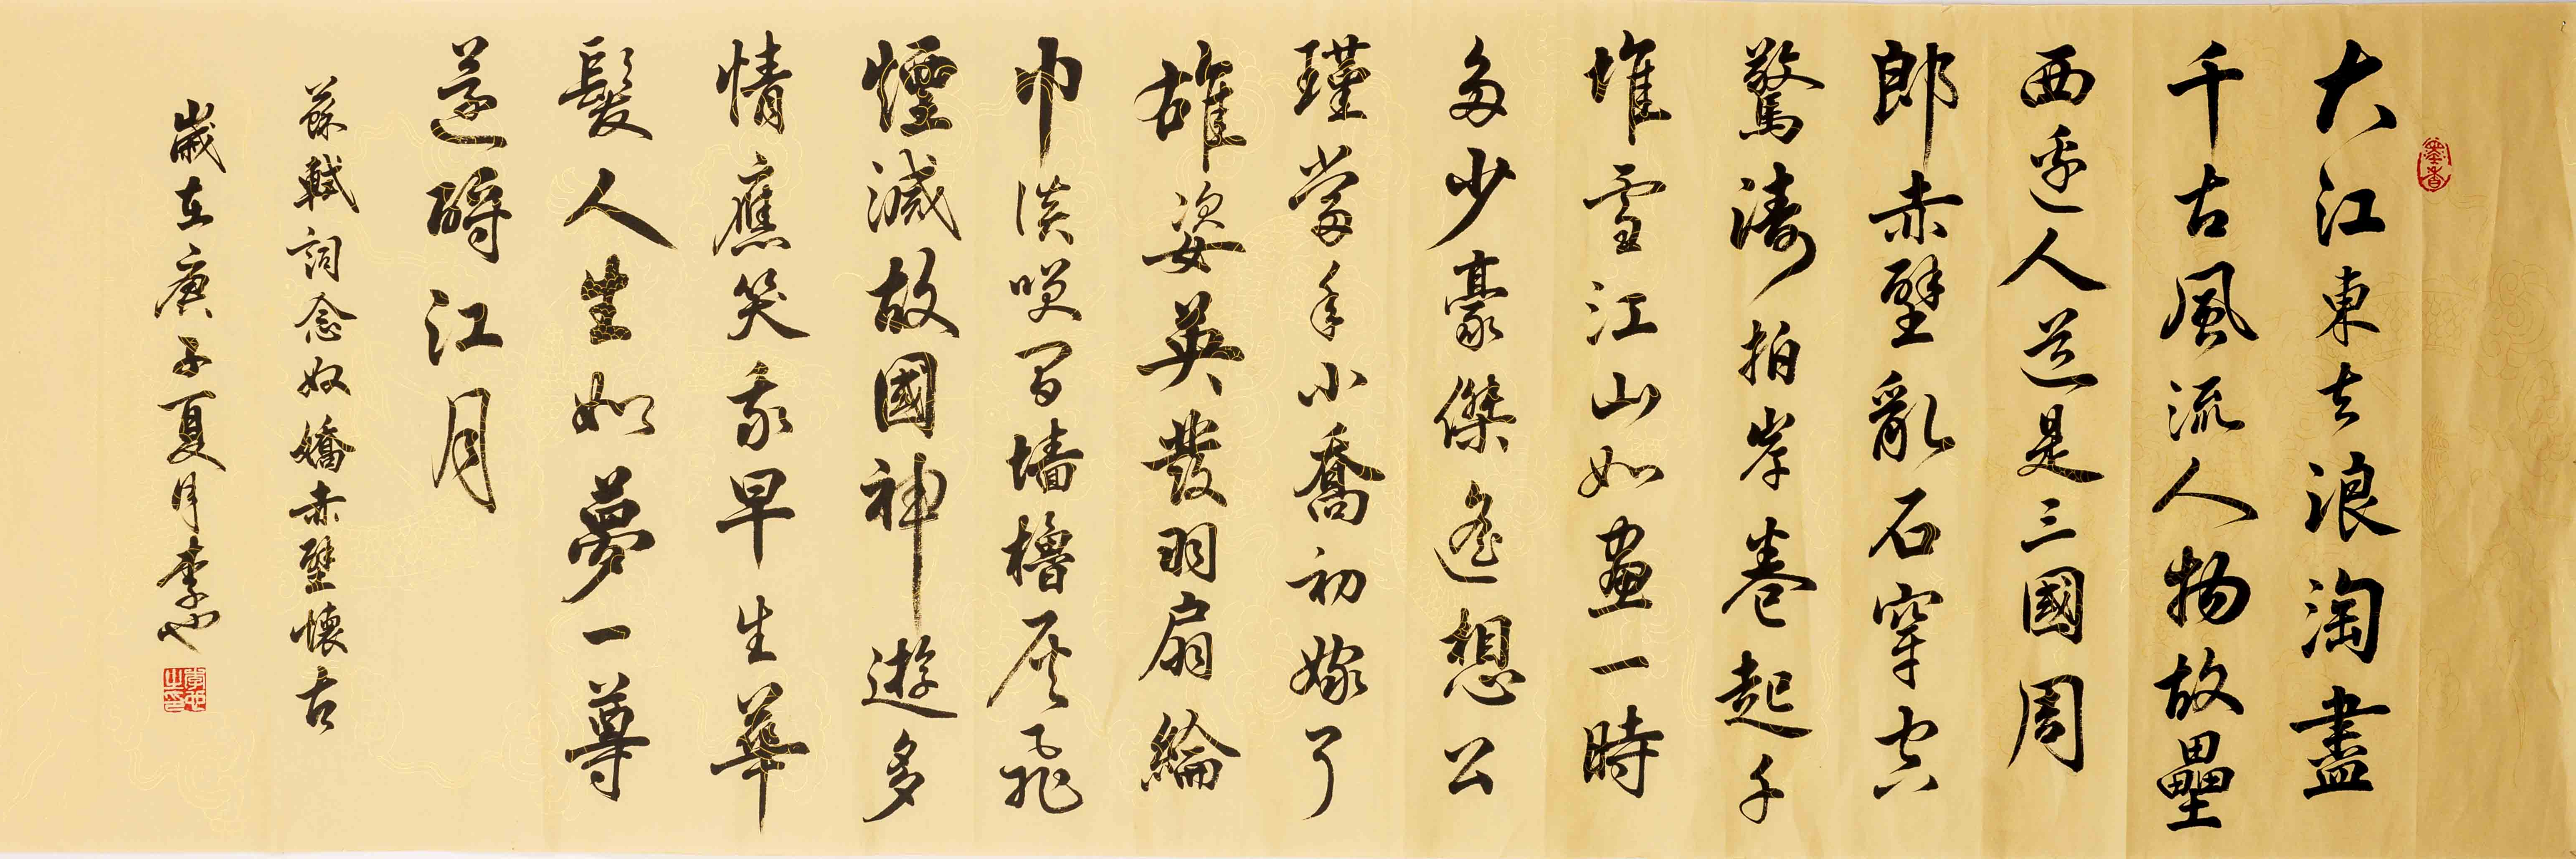 墨香
大江東去浪淘盡
千古風流人物故壘
西邊人道是三國周
郎赤壁亂石穿空
驚濤拍岸卷起千
堆雪江山如畫一時
多少豪傑遙想公
瑾當年小喬初嫁了
雄姿英發羽扇綸
巾談咲間墻櫓灰飛
煙滅故國神遊多
情應笑我早生華
髮人生如夢一尊
還酹江月
蘇軾詞念奴嬌赤壁懷古
歲在庚子夏月李